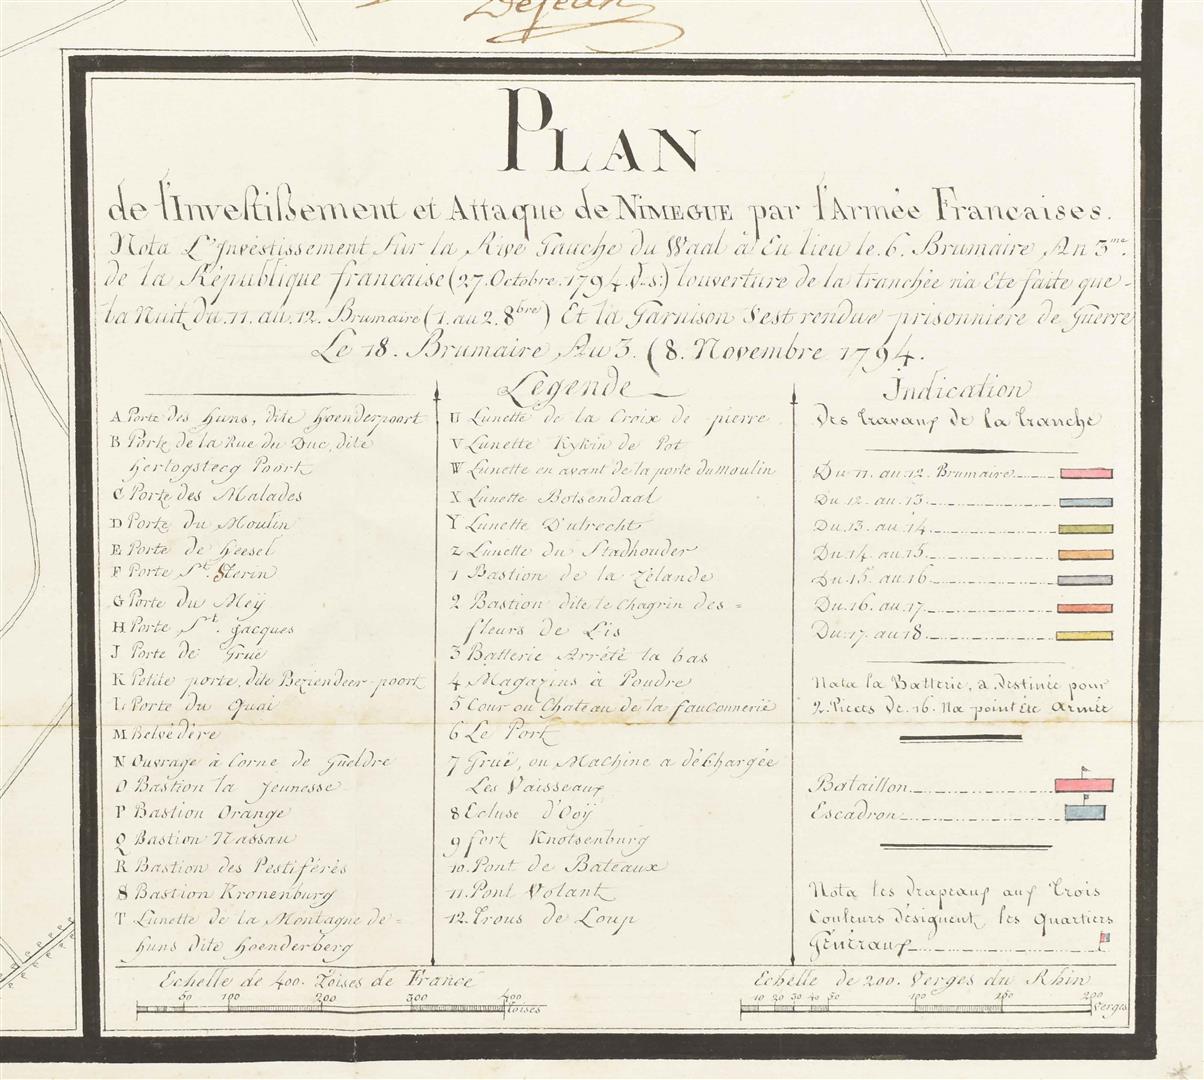 Dejean
PLAN
de l'Investissement et Attaque de NIMEGUE par l'Armée Francaises.
Nota L'Investissement Sur la Rive Gauche du Waal à Eu lieu le 6. Brumaire An 3.me
de la République francaise (27. Octobre. 1794. V.s.) l'ouverture de la tranchée n'a Eté faite que
la Nuit du 11. au 12. Brumaire (1. au 2. 8bre) Et la Garnison s'est rendue prisonniere de Guerre
Le 18. Brumaire An 3. (8. Novembre 1794.
Légende
A Porte des Huns, dite Hoenderpoort
B Porte de la Rue du Duc, dite
Hertogsteeg Poort
C Porte des Malades
D Porte du Moulin
E Porte de Heesel
F Porte St. Sterin
G Porte du Meÿ
H Porte St. Jacques
J Porte de Gruë
K Petite porte, dite Beziendeer-poort
L Porte du Quai
M Belvédère
N Ouvrage à Corne de Gueldre
O Bastion la Jeunesse
P Bastion Orange
Q Bastion Nassau
R Bastion des Pestiférés
S Bastion Kronenburg
T Lunette de la Montagne de-
Huns dite Hoenderberg
U Lunette de la Croix de pierre
V Lunette Kykin de Pot
W Lunette en avant de la porte du moulin
X Lunette Botsendaal
Y Lunette D'utrecht
Z Lunette du Stadhouder
1 Bastion de la Zélande
2 Bastion dite le Chagrin des=
fleurs de Lis
3 Batterie Arrêté la bas
4 Magazins à Poudre
5 Cour ou Chateau de la fauconnerie
6 Le Port
7 Gruë, ou Machine a déChargée
Les Vaisseaux
8 Ecluse d'Ooÿ
9 fort Knotsenburg
10. Pont de Bateaux
11. Pont Volant
12. Trous de Loup
Indication
Des travaux de la tranche
Du 11. au 12. Brumaire
Du 12. au 13.
Du 13. au 14
Du 14. au 15.
Du 15. au 16.
Du 16. au 17.
Du 17. au 18.
Nata la Batterie, a. destinée pour
2. Pieces de 16. Na point éte armée
Bataillon
Escadron
Nota les drapeaux aux trois
Couleurs désignent les Quartiers
Généraux
Echelle de 400. Toises de France
50 100 200 300 400
Toises
Echelle de 200. Verges du Rhin
10 20 30 40 50 100 150 200
Verges